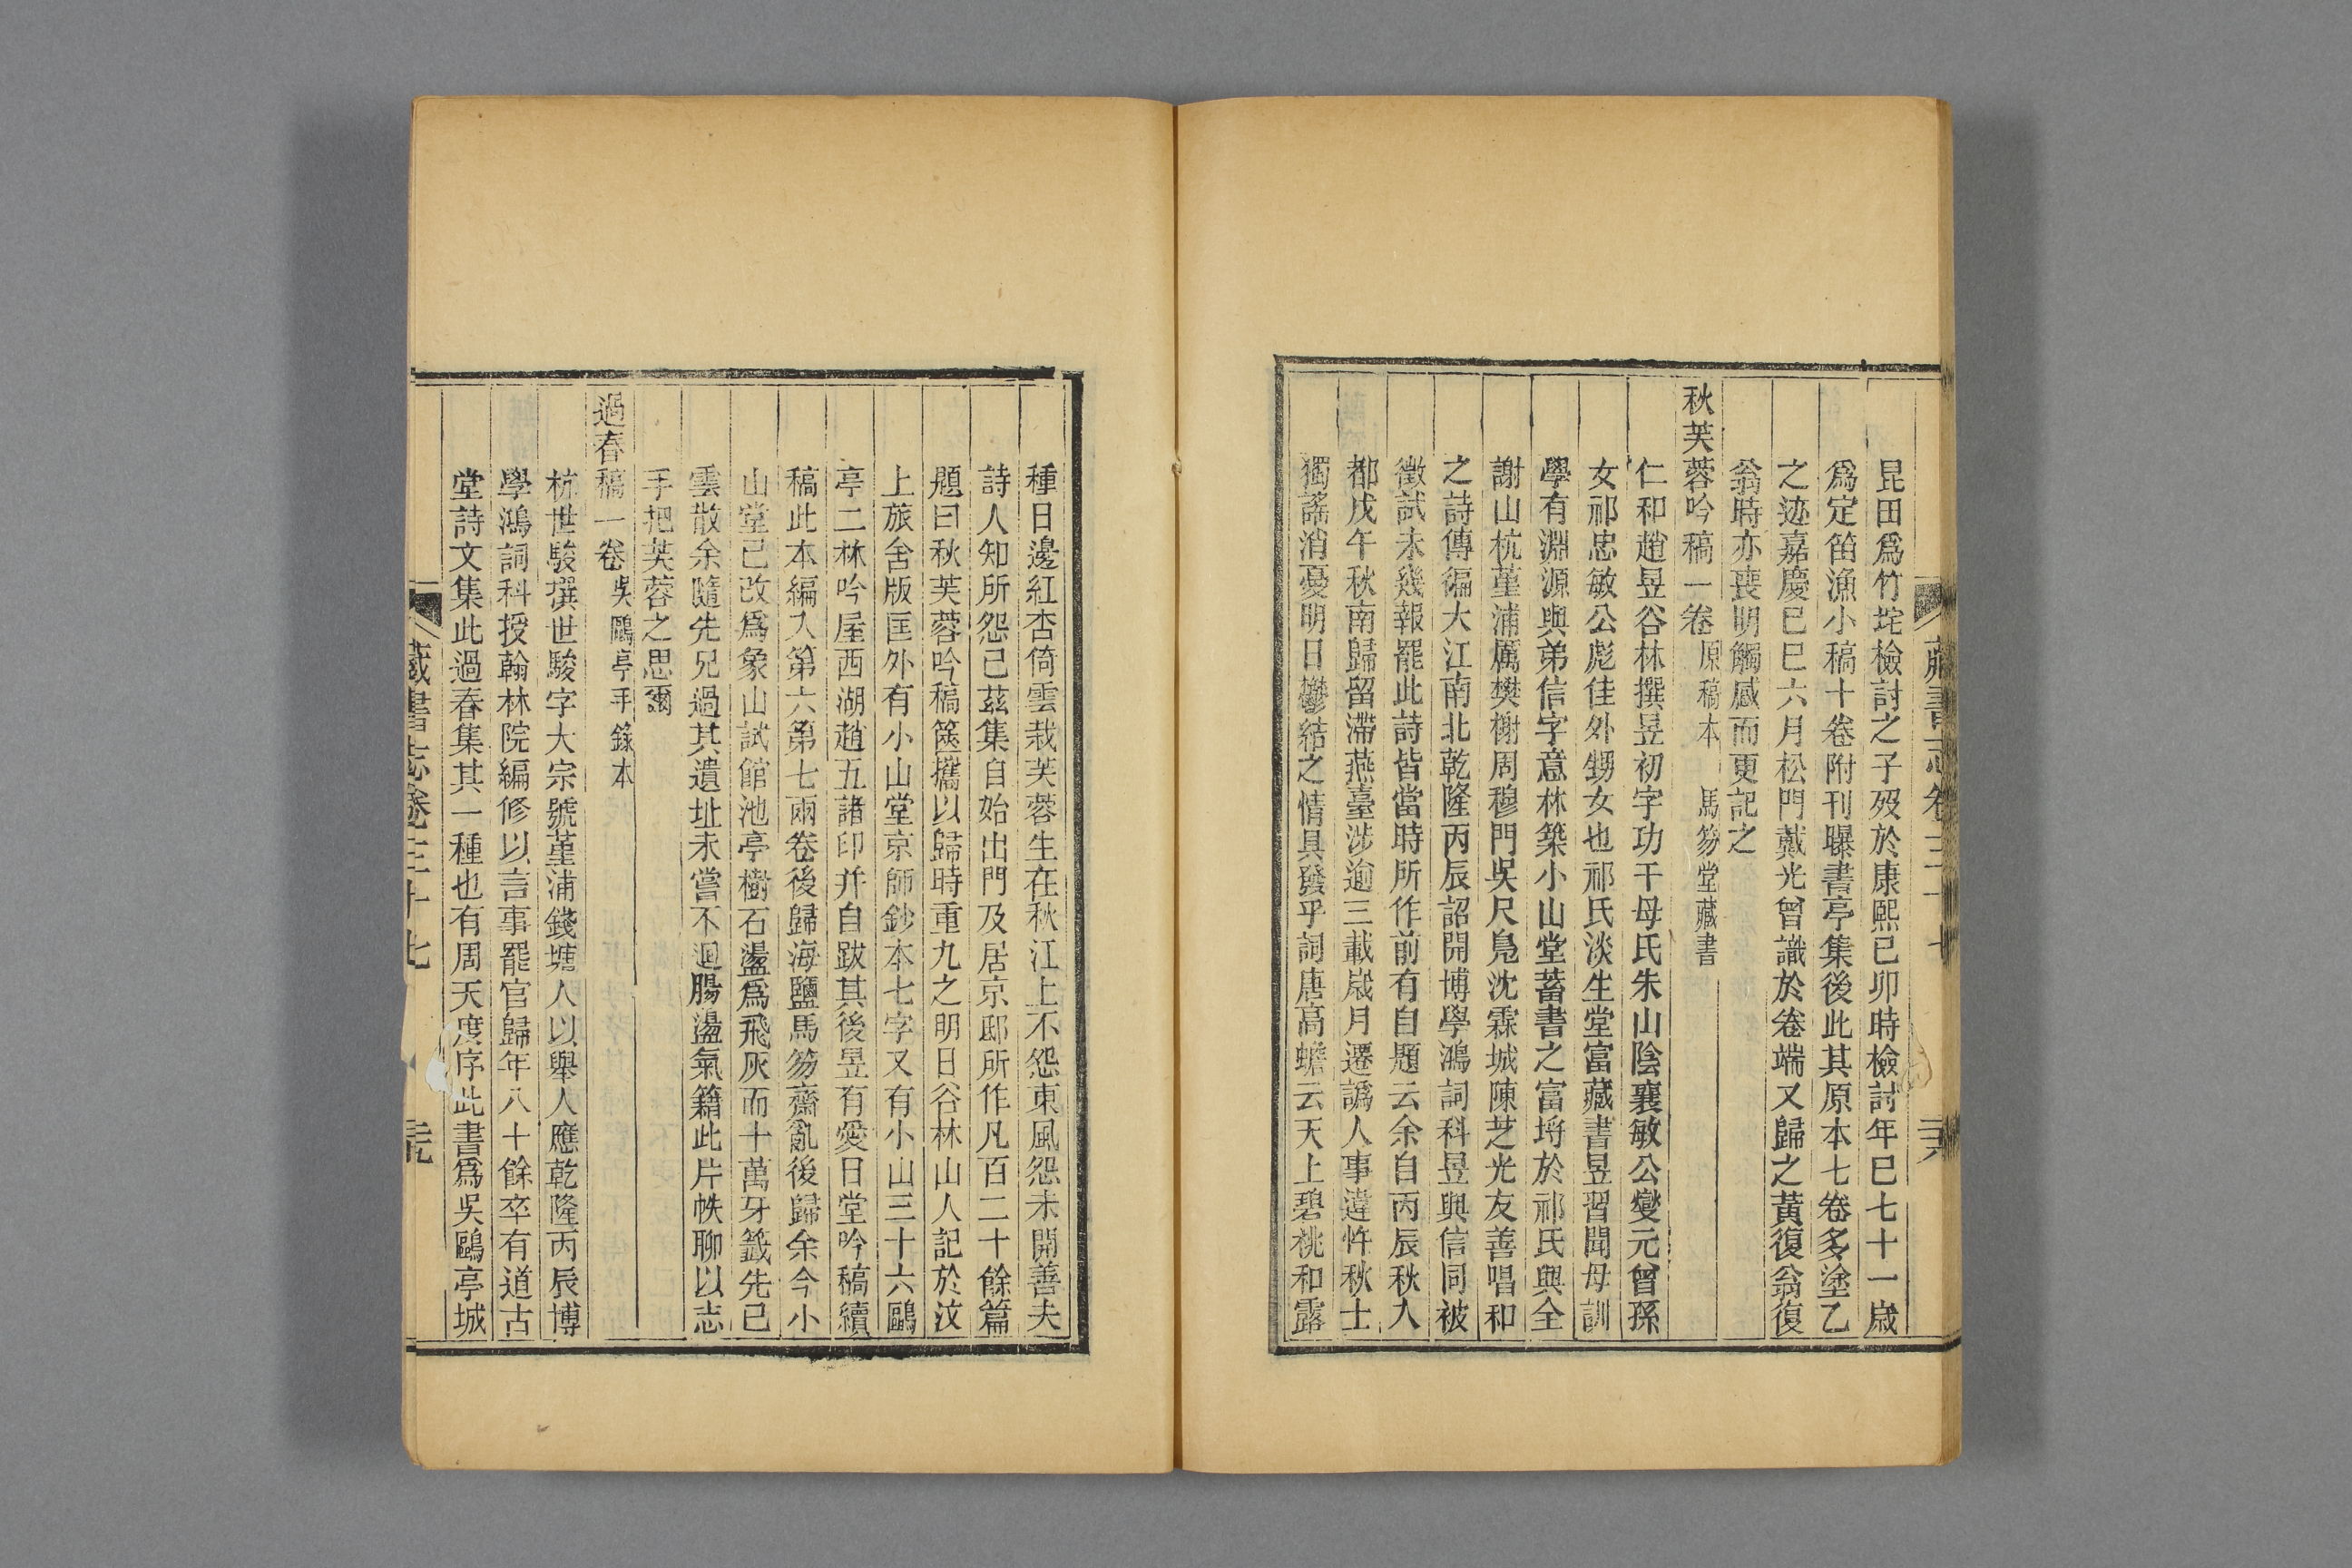 昆田爲竹垞檢討之子歿於康熙己卯時檢討年已七十一歲
爲定笛漁小稿十卷附刊曝書亭集後此其原本七卷多塗乙
之迹嘉慶己巳六月松門戴光曾識於卷端又歸之黃復翁復
翁時亦喪明觸感而更記之
秋芙蓉吟稿一卷 原稿本 馬笏堂藏書
仁和趙昱谷林撰昱初字功千母氏朱山陰襄敏公燮元曾孫
女祁忠敏公彪佳外甥女也祁氏淡生堂富藏書昱習聞母訓
學有淵源與弟信字意林築小山堂蓄書之富埒於祁氏與全
謝山杭堇浦厲樊榭周穆門吳尺鳧沈霖城陳芝光友善唱和
之詩傳徧大江南北乾隆丙辰詔開博學鴻詞科昱與信同被
徵試未幾報罷此詩皆當時所作前有自題云余自丙辰秋入
都戊午秋南歸留滯燕臺涉逾三載歲月遷譌人事違忤秋士
獨謠消憂明日鬱結之情具發乎詞唐高蟾云天上碧桃和露
種日邊紅杏倚雲栽芙蓉生在秋江上不怨東風怨未開善夫
詩人知所怨已茲集自始出門及居京邸所作凡百二十餘篇
題曰秋芙蓉吟稿篋攜以歸時重九之明日谷林山人記於汶
上旅舍版匡外有小山堂京師鈔本七字又有小山三十六鷗
亭二林吟屋西湖趙五諸印并自跋其後昱有愛日堂吟稿續
稿此本編入第六第七兩卷後歸海鹽馬笏齋亂後歸余今小
山堂已改爲象山試館池亭樹石盪爲飛灰而十萬牙籤先已
雲散余隨先兄過其遺址未嘗不迴腸盪氣籍此片帙聊以志
手把芙蓉之思爾
過春稿一卷 吳鷗亭手錄本
杭世駿撰世駿字大宗號堇浦錢塘人以舉人應乾隆丙辰博
學鴻詞科授翰林院編修以言事罷官歸年八十餘卒有道古
堂詩文集此過春集其一種也有周天度序此書爲吳鷗亭城